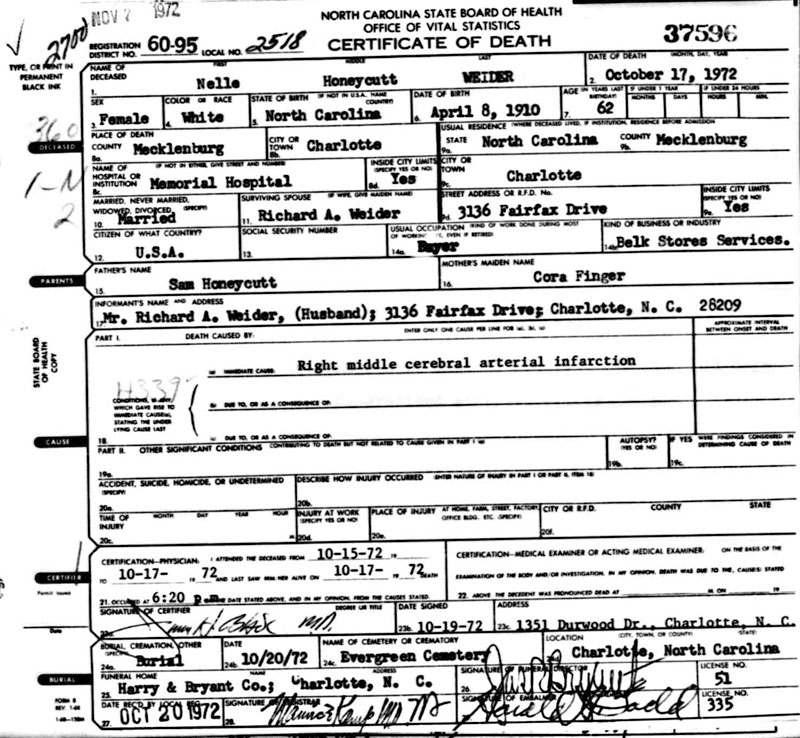 NOV 2 1972
NORTH CAROLINA STATE BOARD OF HEALTH
OFFICE OF VITAL STATISTICS
CERTIFICATE OF DEATH
37596
2700
TYPE, OR PRINT IN PERMANENT BLACK INK
REGISTRATION DISTRICT NO. 60-95 LOCAL NO. 2518
NAME OF DECEASED FIRST MIDDLE LAST DATE OF DEATH (MONTH, DAY, YEAR)
1. Nelle Honeycutt WEIDER 2. October 17, 1972
SEX COLOR OR RACE STATE OF BIRTH (IF NOT IN U.S.A. NAME COUNTRY) DATE OF BIRTH AGE (IN YEARS LAST BIRTHDAY) IF UNDER 1 YEAR IF UNDER 24 HOURS
MONTHS DAYS HOURS MIN.
3. Female 4. White 5. North Carolina 6. April 8, 1910 7. 62
360
DECEASED
PLACE OF DEATH USUAL RESIDENCE (WHERE DECEASED LIVED, IF INSTITUTION, RESIDENCE BEFORE ADMISSION
8a. COUNTY Mecklenburg 8b. CITY OR TOWN Charlotte 9a. STATE North Carolina 9b. COUNTY Mecklenburg
1-N
2
NAME OF HOSPITAL OR INSTITUTION (IF NOT IN EITHER, GIVE STREET AND NUMBER) INSIDE CITY LIMITS (SPECIFY YES OR NO) CITY OR TOWN
8c. Memorial Hospital 8d. Yes 9c. Charlotte
MARRIED, NEVER MARRIED, WIDOWED, DIVORCED (SPECIFY) SURVIVING SPOUSE (IF WIFE, GIVE MAIDEN NAME) STREET ADDRESS OR R.F.D. NO. INSIDE CITY LIMITS (SPECIFY YES OR NO)
10. Married 11. Richard A. Weider 9d. 3136 Fairfax Drive 9e. Yes
CITIZEN OF WHAT COUNTRY? SOCIAL SECURITY NUMBER USUAL OCCUPATION (KIND OF WORK DONE DURING MOST OF WORKING EVEN IF RETIRED) KIND OF BUSINESS OR INDUSTRY
12. U.S.A. 13. 14a. Buyer 14b. Belk Stores Services.
PARENTS
FATHER'S NAME MOTHER'S MAIDEN NAME
15. Sam Honeycutt 16. Cora Finger
INFORMANT'S NAME AND ADDRESS
17. Mr. Richard A. Weider, (Husband); 3136 Fairfax Drive; Charlotte, N. C. 28209
STATE BOARD OF HEALTH COPY
PART I. DEATH CAUSED BY: ENTER ONLY ONE CAUSE PER LINE FOR (a), (b), (c) APPROXIMATE INTERVAL BETWEEN ONSET AND DEATH
(a) IMMEDIATE CAUSE: Right middle cerebral arterial infarction
CONDITIONS, IF ANY, WHICH GAVE RISE TO IMMEDIATE CAUSE(a), STATING THE UNDERLYING CAUSE LAST
(b) DUE TO, OR AS A CONSEQUENCE OF:
18. (c) DUE TO, OR AS A CONSEQUENCE OF:
CAUSE
PART II. OTHER SIGNIFICANT CONDITIONS CONTRIBUTING TO DEATH BUT NOT RELATED TO CAUSE GIVEN IN PART I (a) AUTOPSY? (YES OR NO) IF YES WERE FINDINGS CONSIDERED IN DETERMINING CAUSE OF DEATH
19a. 19b. 19c.
ACCIDENT, SUICIDE, HOMICIDE, OR UNDETERMINED (SPECIFY) DESCRIBE HOW INJURY OCCURRED (ENTER NATURE OF INJURY IN PART I OR PART II, ITEM 18)
20a. 20b.
TIME OF INJURY MONTH DAY YEAR HOUR INJURY AT WORK (SPECIFY YES OR NO) PLACE OF INJURY AT HOME, FARM, STREET, FACTORY, OFFICE BLDG. ETC. (SPECIFY) CITY OR R.F.D. COUNTY STATE
20c. 20d. 20e. 20f.
CERTIFIER
CERTIFICATION-PHYSICIAN: I ATTENDED THE DECEASED FROM 10-15-72 19 CERTIFICATION-MEDICAL EXAMINER OR ACTING MEDICAL EXAMINER: ON THE BASIS OF THE
TO 10-17- 72 AND LAST SAW HER ALIVE ON 10-17- 72 DEATH EXAMINATION OF THE BODY AND/OR INVESTIGATION, IN MY OPINION, DEATH WAS DUE TO THE, CAUSE(S) STATED
21. OCCURRED AT 6:20 DATE STATED ABOVE, AND IN MY OPINION, FROM THE CAUSES STATED. 22. ABOVE. THE DECEDENT WAS PRONOUNCED DEAD AT M ON 19
Permit issued
Date
SIGNATURE OF CERTIFIER DEGREE OR TITLE DATE SIGNED ADDRESS
M.D. 23b. 10-19-72 23c. 1351 Durwood Dr., Charlotte, N. C.
BURIAL, CREMATION, OTHER (SPECIFY) DATE NAME OF CEMETERY OR CREMATORY LOCATION (CITY, TOWN, OR COUNTY) (STATE)
24a. Burial 24b. 10/20/72 24c. Evergreen Cemetery Charlotte, North Carolina
BURIAL
FUNERAL HOME NAME ADDRESS SIGNATURE OF FUNERAL DIRECTOR LICENSE NO.
25. Harry & Bryant Co.; Charlotte, N. C. 26. 51
FORM 8
REV. 1-68
DATE REC'D BY LOCAL REG. SIGNATURE OF REGISTRAR SIGNATURE OF EMBALMER LICENSE NO.
27. OCT 20 1972 28. Maurice Kamp MD 335